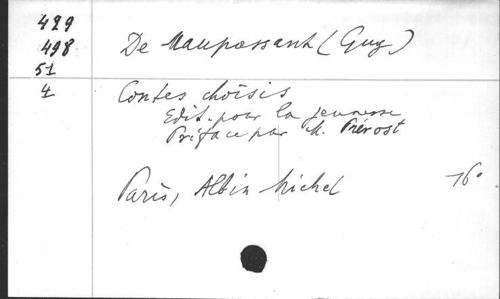 429
498
51
4
De Maupassant (Guy)
Contes choisis
Edit. pour la jeunesse
Préface par M. Prévost
Paris, Albin Michel 16°